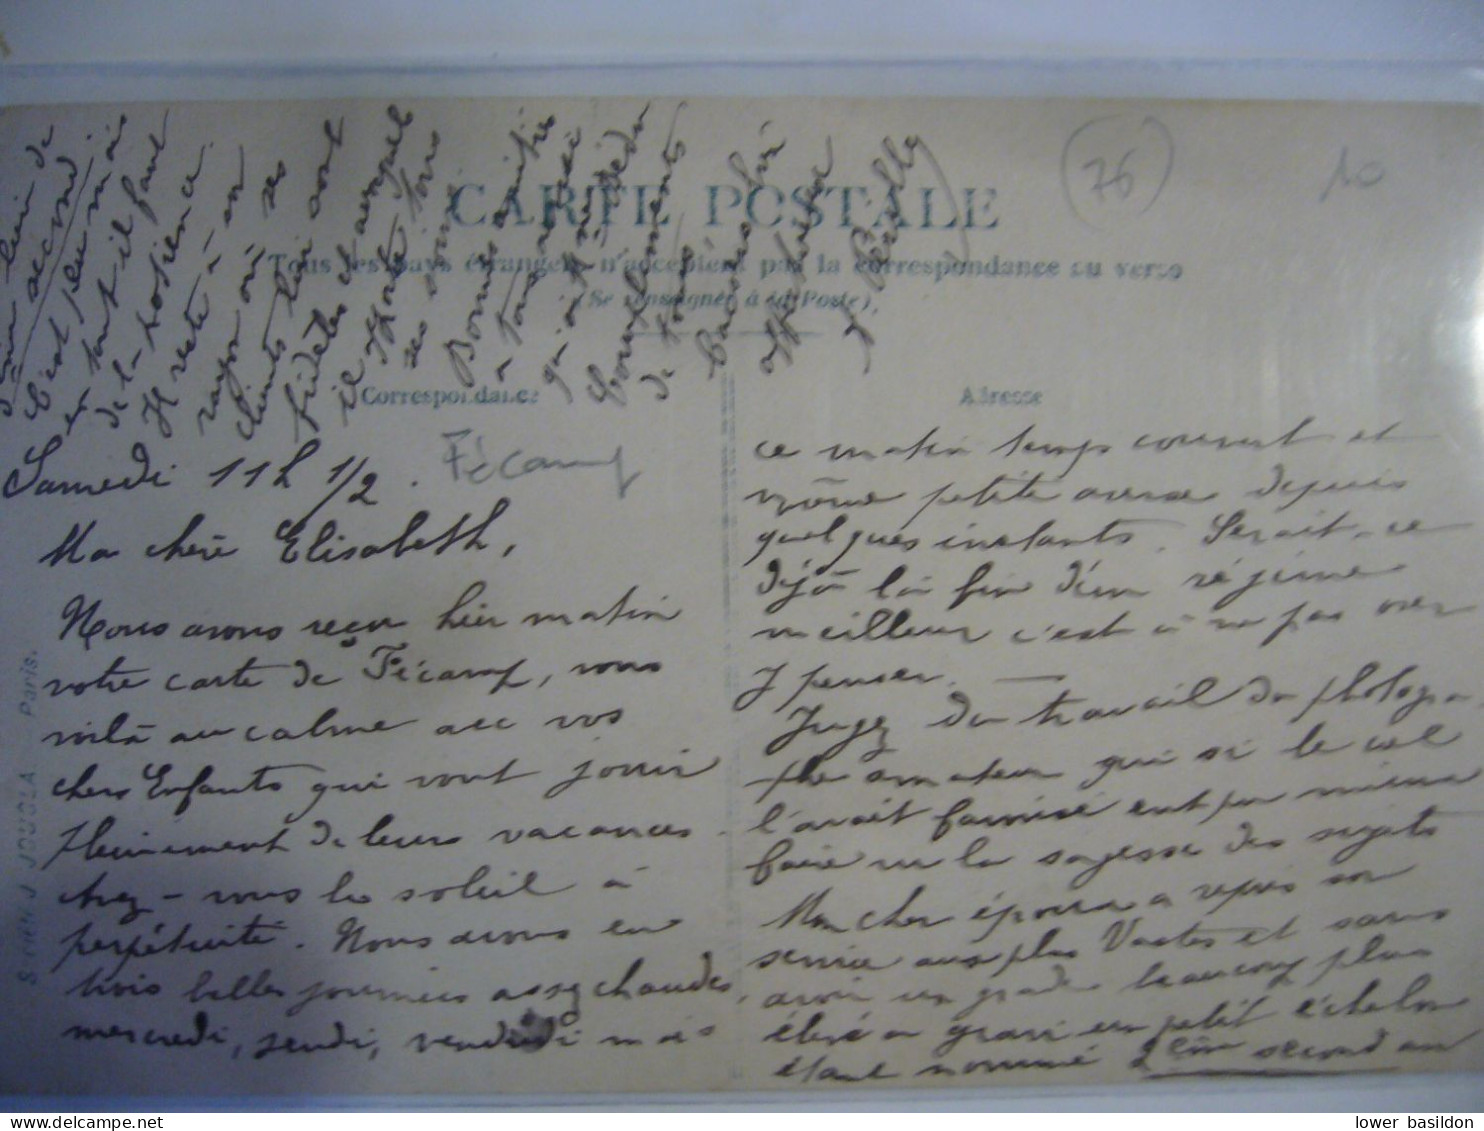 CARTE POSTALE
Tous les pays étrangers n'acceptent pas la correspondance au verso
(Se renseigner à la Poste).
Correspondance
Adresse
(76)
10
Fécamp
Samedi 11h 1/2.
Ma chère Elisabeth,
Nous avons reçu hier matin
votre carte de Fécamp, vous
voilà au calme avec vos
chers Enfants qui vont jouir
pleinement de leurs vacances.
Avez-vous le soleil à
perpétuité. Nous avons eu
trois belles journées assez chaudes,
mercredi, jeudi, vendredi mais
ce matin temps couvert et
même petite averse depuis
quelques instants. Serait-ce
déjà la fin d'un régime
meilleur c'est à ne pas oser
y penser. —
Jugez du travail du photogra
phe amateur qui si le ciel
l'avait favorisé eut pu mieux
faire vu la sagesse des sujets
Mon cher époux a repris son
service aux plus Vastes et sans
avoir un grade beaucoup plus
élevé a gravi un petit échelon
étant nommé 2ème second au
lieu de
second
C'est peu mais
en tout il faut
de la patience.
Il reste à son
rayon où ses
clients lui sont
fidèles et auxquels
il
ses
Bonnes
à tous
Compliments
de tous
affectueux
J JOUGLA Paris.
lower basildon